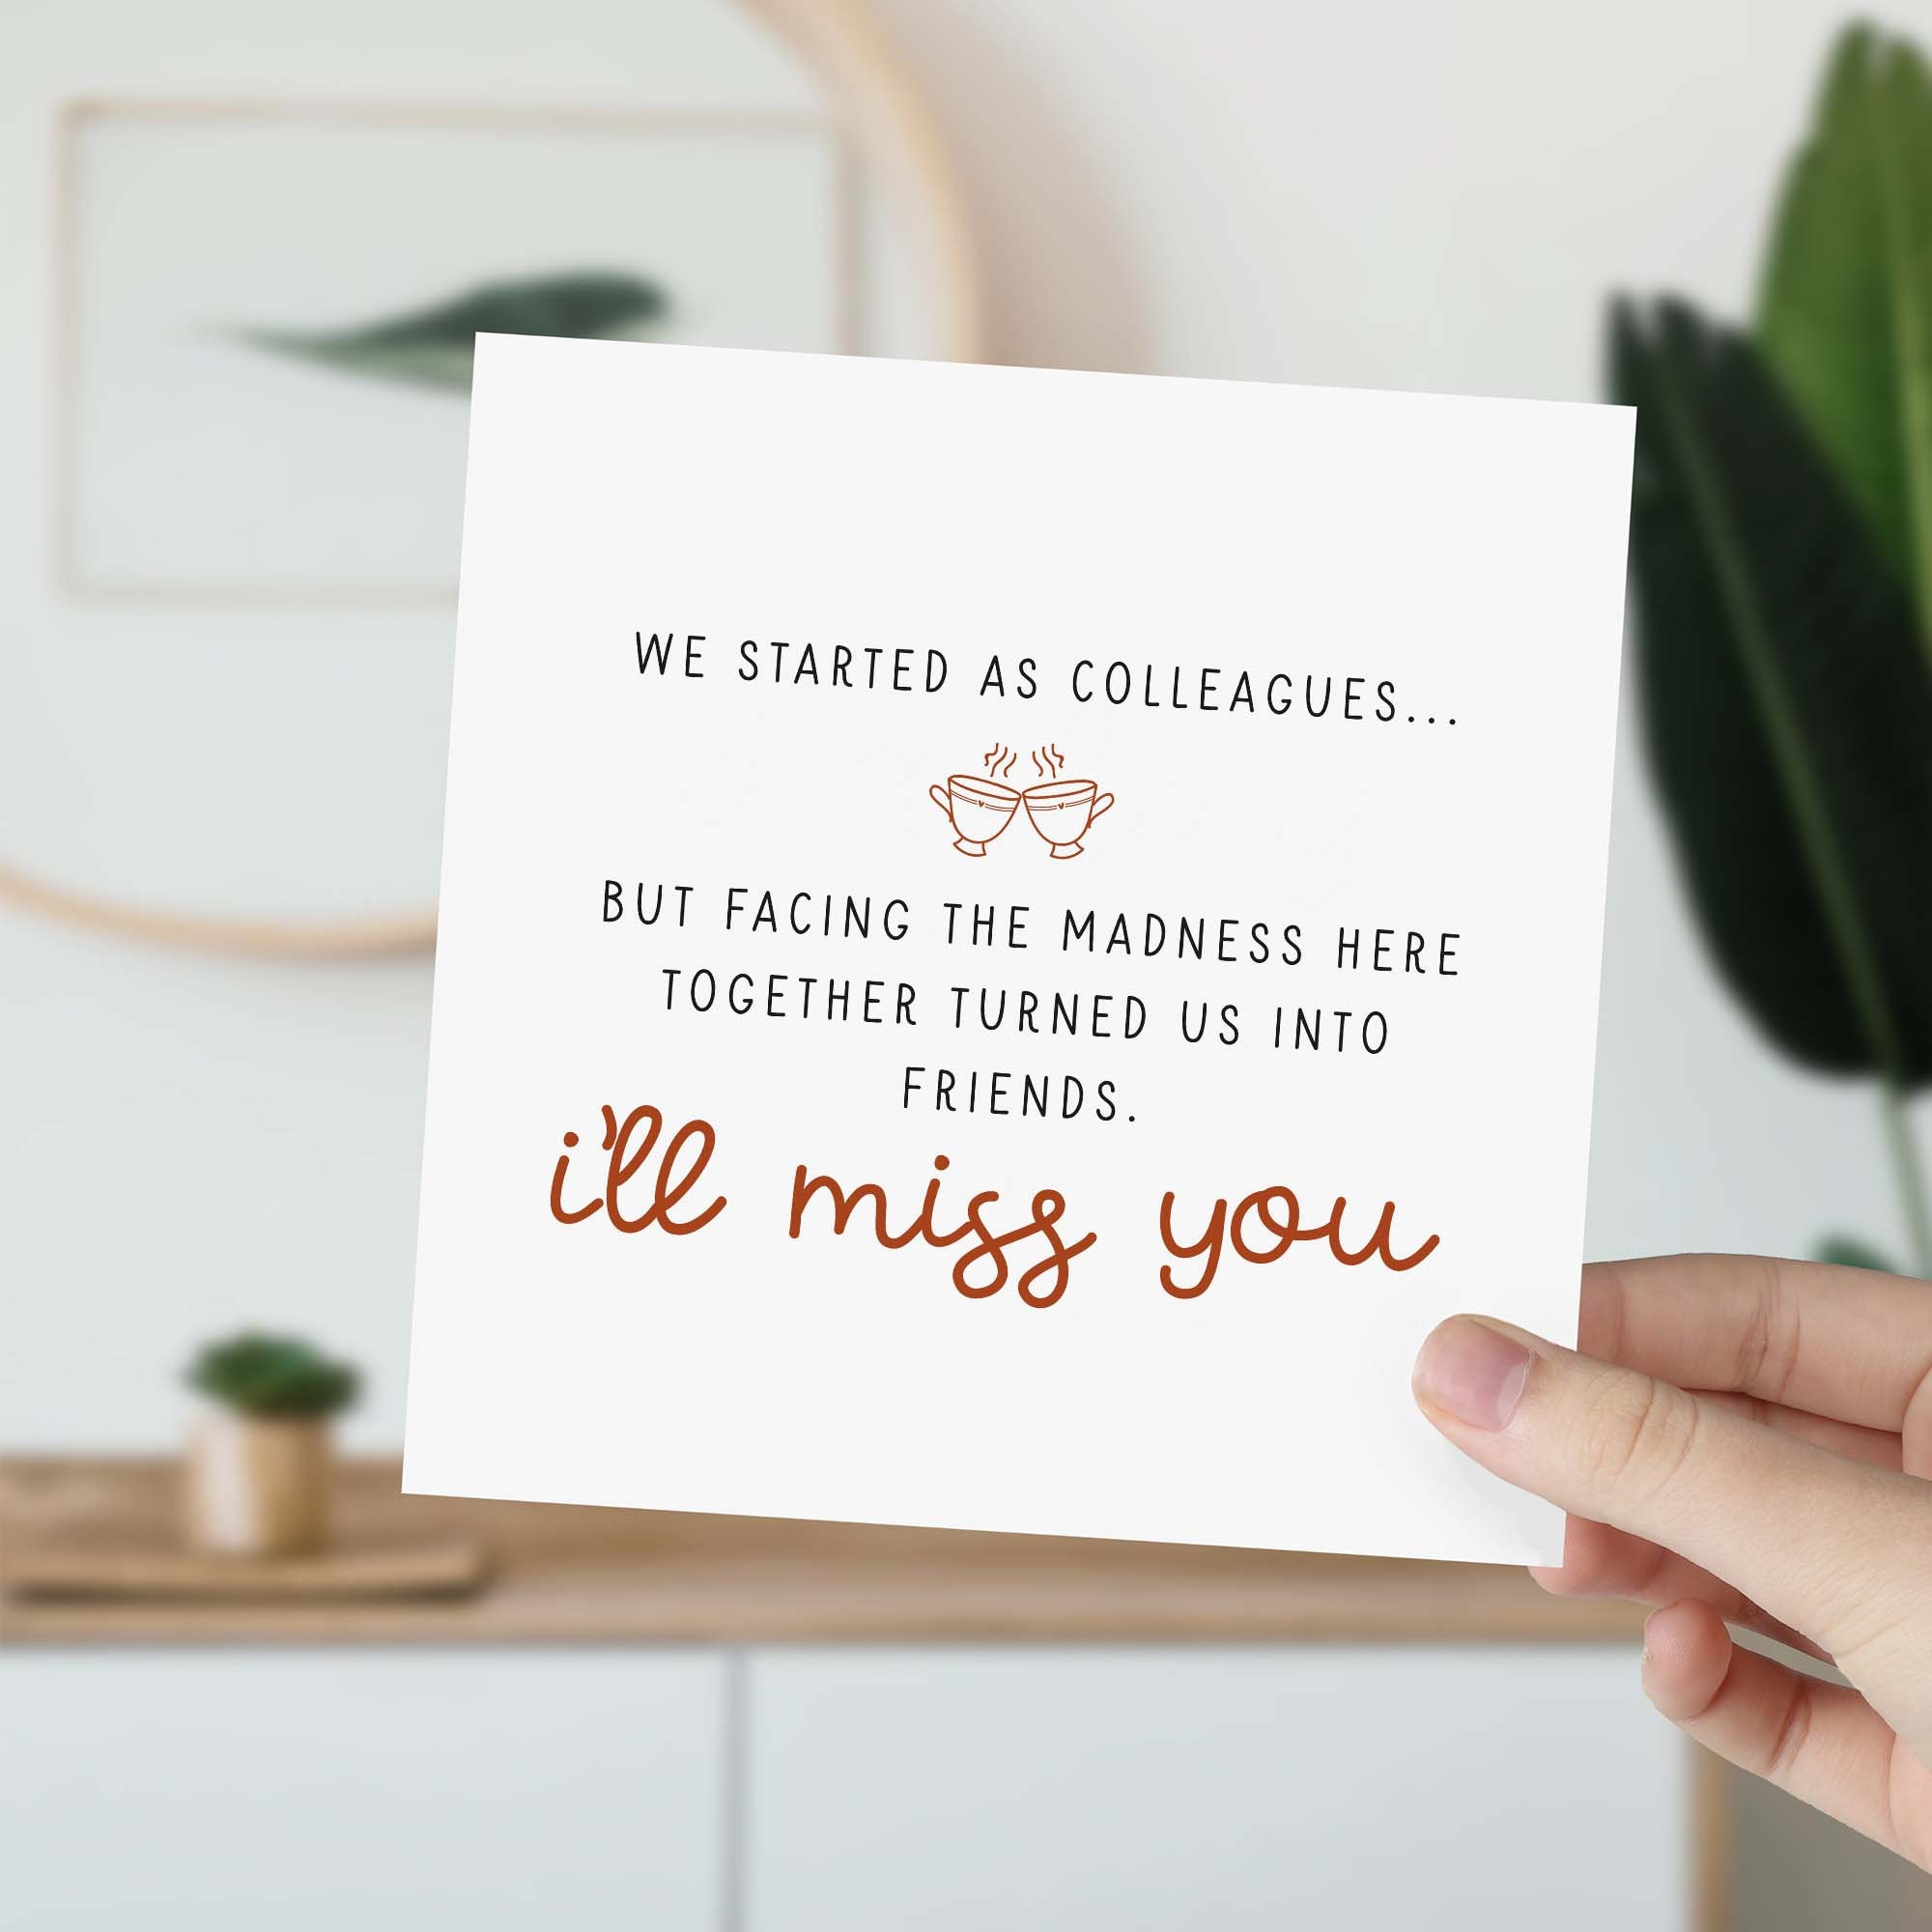 WE STARTED AS COLLEAGUES...
BUT FACING THE MADNESS HERE
TOGETHER TURNED US INTO
FRIENDS.
i'll miss you